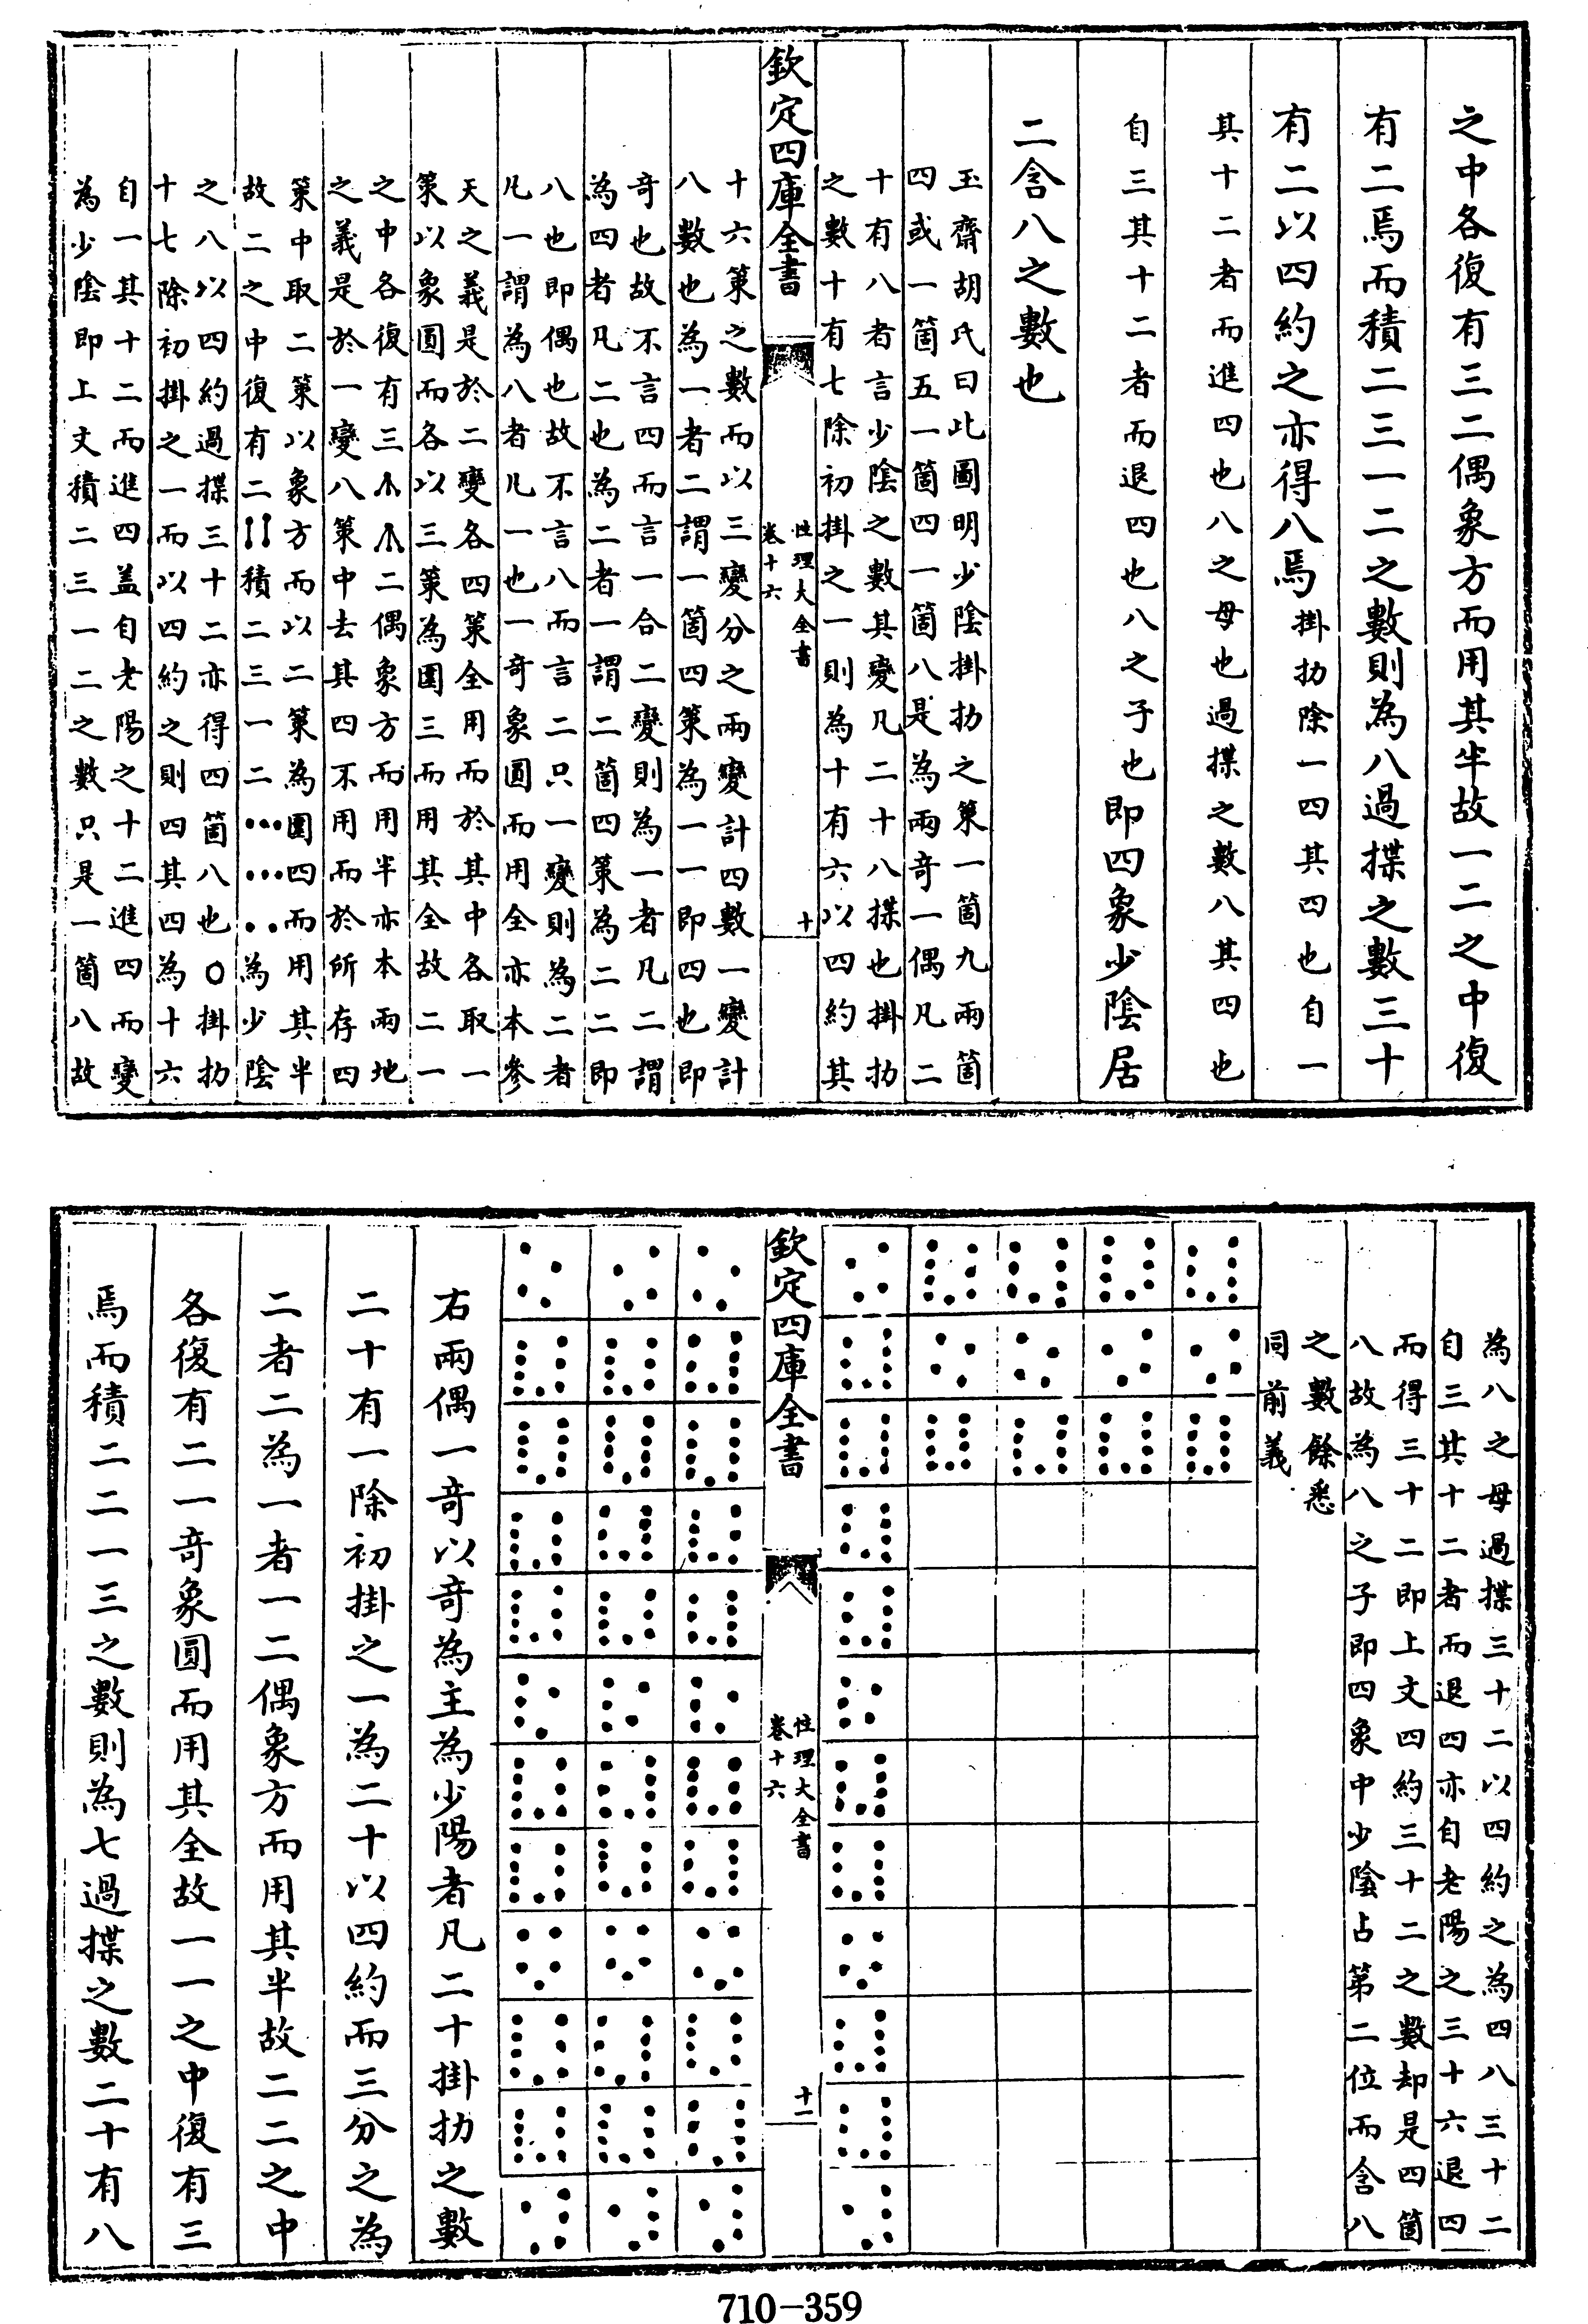 之中各復有三二偶象方而用其半故一二之中復
有二焉而積二三一二之數則為八過揲之數三十
有二以四約之亦得八焉
掛扐除一四其四也自一
其十二者而進四也八之母也過揲之數八其四也
自三其十二者而退四也八之子也
即四象少陰居
二含八之數也
玉齋胡氏曰此圖明少陰掛扐之策一箇九兩箇
四或一箇五一箇四一箇八是為兩奇一偶凡二
十有八者言少陰之數其變凡二十八揲也掛扐
之數十有七除初掛之一則為十有六以四約其
欽定四庫全書
性理大全書
卷十六
十
十六策之數而以三變分之兩變計四數一變計
八數也為一者二謂一箇四策為一一即四也即
奇也故不言四而言一合二變則為一者凡二謂
為四者凡二也為二者一謂二箇四策為二二即
八也即偶也故不言八而言二只一變則為二者
凡一謂為八者凡一也一奇象圓而用全亦本參
天之義是於二變各四策全用而於其中各取一
策以象圓而各以三策為圍三而用其全故二一
之中各復有三二偶象方而用半亦本兩地
之義是於一變八策中去其四不用而於所存四
策中取二策以象方而以二策為圍四而用其半
故二之中復有二積二三一二為少陰
之八以四約過揲三十二亦得四箇八也○掛扐
十七除初掛之一而以四約之則四其四為十六
自一其十二而進四盖自老陽之十二進四而變
為少陰即上文積二三一二之數只是一箇八故
為八之母過揲三十二以四約之為四八三十二
自三其十二者而退四亦自老陽之三十六退四
而得三十二即上文四約三十二之數却是四箇
八故為八之子即四象中少陰占第二位而含八
之數餘悉
同前義
欽定四庫全書
性理大全書
卷十六
十一
右兩偶一奇以奇為主為少陽者凡二十掛扐之數
二十有一除初掛之一為二十以四約而三分之為
二者二為一者一二偶象方而用其半故二二之中
各復有二一奇象圓而用其全故一一之中復有三
焉而積二二一三之數則為七過揲之數二十有八
710-359